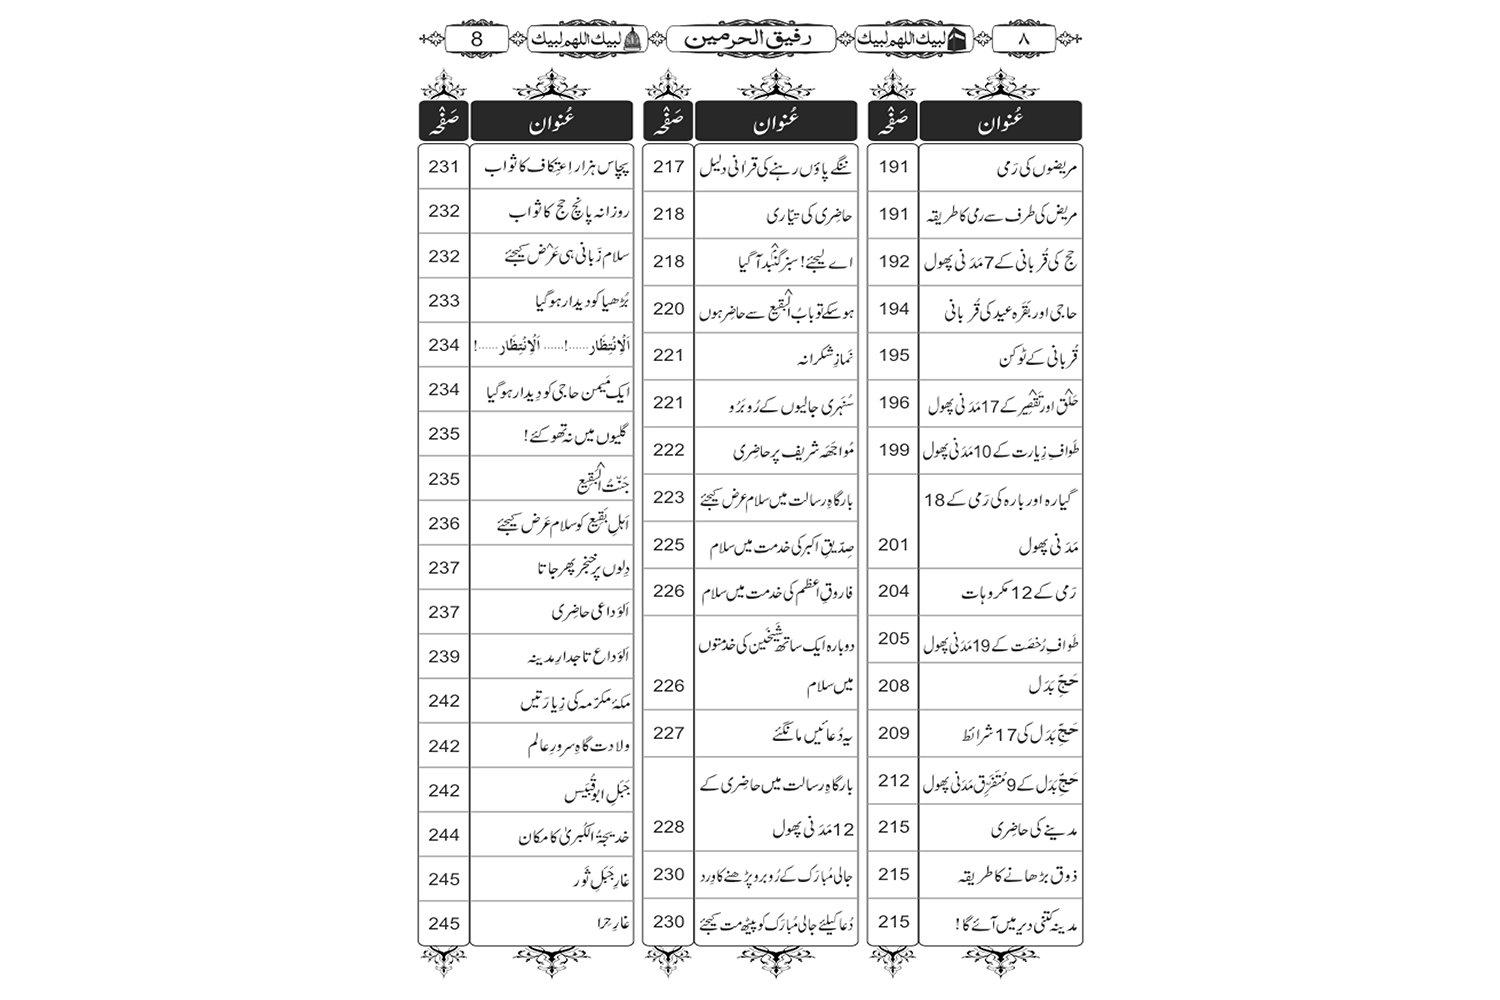 ٨ لبيك اللهم لبيك رفيق الحرمين لبيك اللهم لبيك 8
عُنوان صَفْحَہ
مریضوں کی رَمی 191
مریض کی طرف سے رمی کا طریقہ 191
حج کی قُربانی کے 7 مَدَنی پھول 192
حاجی اور بَقَرہ عید کی قُربانی 194
قُربانی کے ٹوکن 195
حَلْق اور تَقْصِیر کے 17 مَدَنی پھول 196
طَوافِ زِیارت کے 10 مَدَنی پھول 199
گیارہ اور بارہ کی رَمی کے 18
مَدَنی پھول 201
رَمی کے 12 مکروہات 204
طَوافِ رُخصَت کے 19 مَدَنی پھول 205
حَجِّ بَدَل 208
حَجِّ بَدَل کی 17 شرائط 209
حَجِّ بَدَل کے 9 مُتَفَرِّق مَدَنی پھول 212
مدینے کی حاضِری 215
ذوق بڑھانے کا طریقہ 215
مدینہ کتنی دیر میں آئے گا! 215
عُنوان صَفْحَہ
ننگے پاؤں رہنے کی قرانی دلیل 217
حاضِری کی تیّاری 218
اے لیجئے! سبز گنْبَد آ گیا 218
ہو سکے تو بابُ الْبَقِیع سے حاضِر ہوں 220
نَمازِ شکرانہ 221
سُنَہری جالیوں کے رُو بَرُو 221
مُواجَھَہ شریف پر حاضِری 222
بارگاہِ رسالت میں سلام عرض کیجئے 223
صِدّیقِ اکبر کی خدمت میں سلام 225
فاروقِ اعظم کی خدمت میں سلام 226
دوبارہ ایک ساتھ شَیْخَین کی خدمتوں
میں سلام 226
یہ دُعائیں مانگئے 227
بارگاہِ رسالت میں حاضِری کے
12 مَدَنی پھول 228
جالی مُبارَک کے رُوبرو پڑھنے کا وِرد 230
دُعا کیلئے جالی مُبارَک کو پیٹھ مت کیجئے 230
عُنوان صَفْحَہ
پچاس ہزار اِعتِکاف کا ثواب 231
روزانہ پانچ حج کا ثواب 232
سلام زَبانی ہی عَرْض کیجئے 232
بُڑھیا کو دیدار ہو گیا 233
اَلْاِنْتِظَار......!...... اَلْاِنْتِظَار......! 234
ایک مَیمن حاجی کو دِیدار ہو گیا 234
گلیوں میں نہ تھوکئے! 235
جَنَّتُ الْبَقِیع 235
اَہلِ بَقِیع کو سلام عَرض کیجئے 236
دِلوں پر خنجر پھر جاتا 237
اَلْوَداعی حاضِری 237
اَلْوَداع تاجدارِ مدینہ 239
مکۂ مکرّمہ کی زِیارَتیں 242
وِلادت گاہِ سرورِ عالم 242
جَبَلِ ابو قُبَیْس 242
خدیجۃُ الکُبریٰ کا مکان 244
غارِ جَبَلِ ثَور 245
غارِ حِرا 245